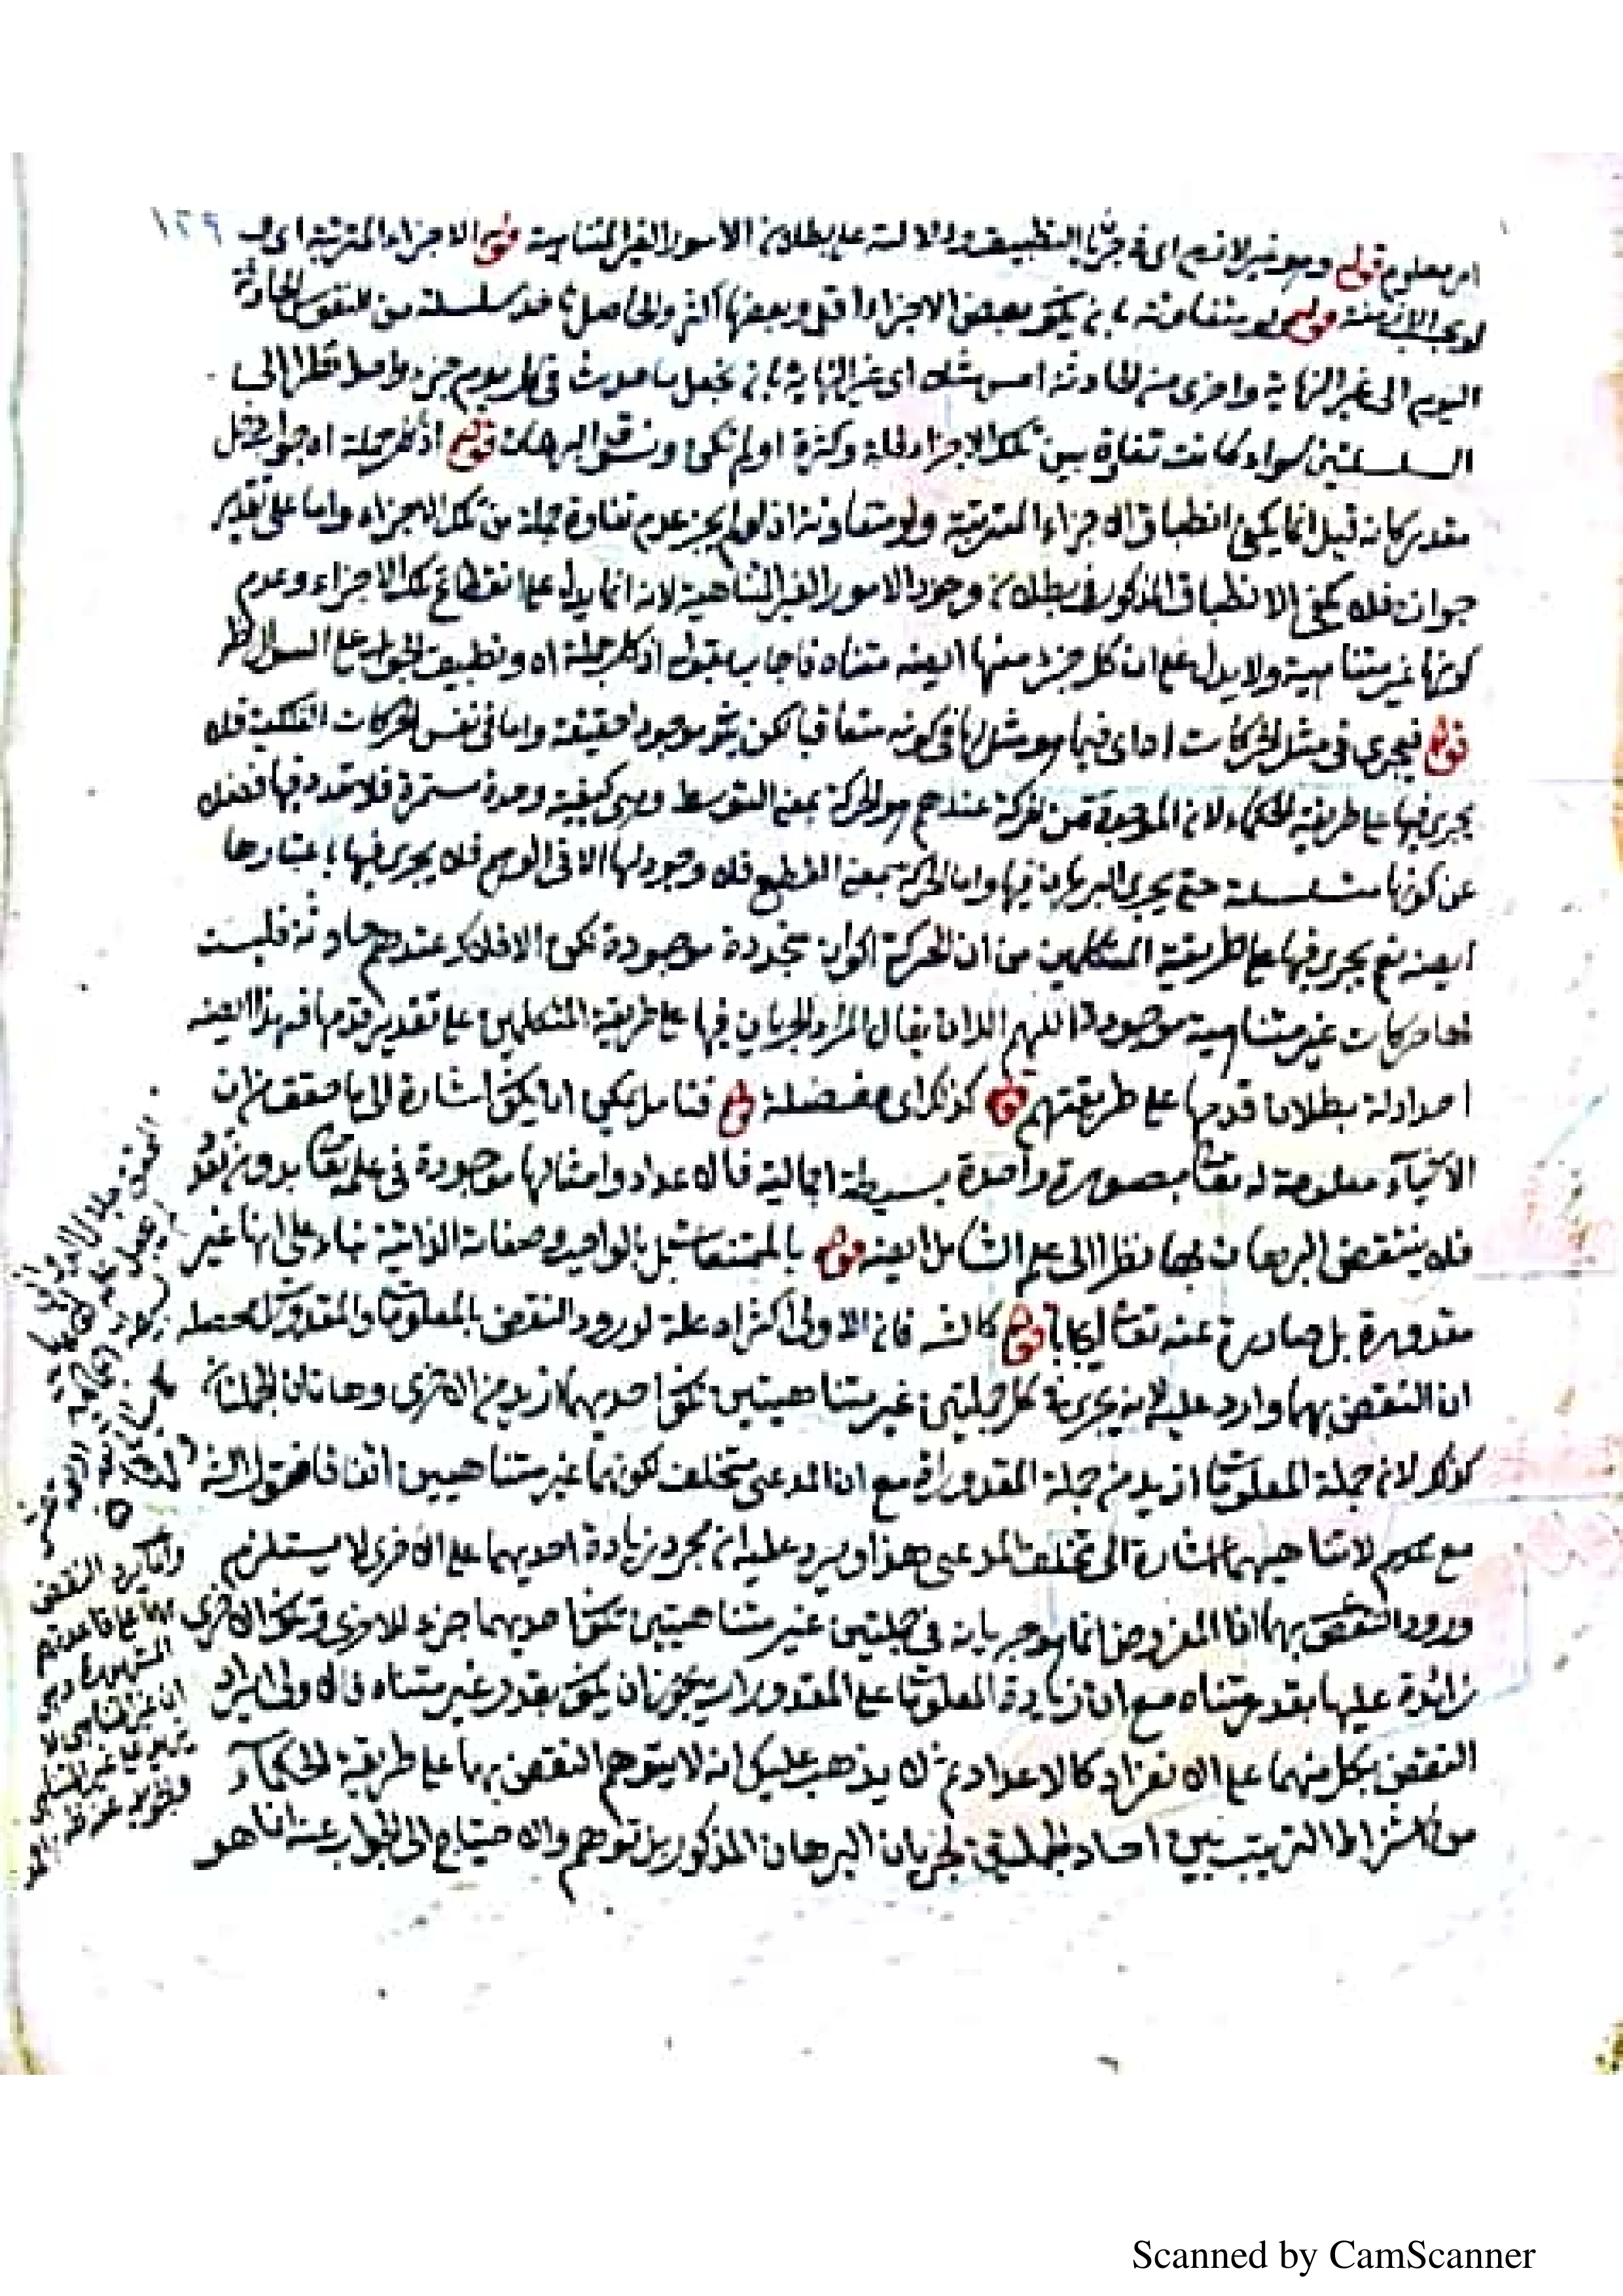 ١٣٩
امر معلوم قوله وهو غير لازم اى فى جريان التطبيق ودلالته على بطلان الامور الغير المتناهية قوله الاجزاء المترتبة اى
الازمنة قوله ولو متفاوتة بان يكون بعض الاجزاء اقل وبعضها اكثر والحاصل نأخذ سلسلة من النفوس الحادثة
اليوم الى غير النهاية واخرى من الحادثة امس مثلا الى غير النهاية بان نجعل ما حدث فى كل يوم جزء واحدا نظرا الى
السلسلتين سواء كانت تفاوت بين تلك الاجزاء قلة وكثرة او لم تكن ونسوق البرهان قوله اذ كل جملة اه جواب دخل
مقدر كانه قيل انما يكفى انطباق الاجزاء المترتبة ولو متفاوتة اذ لو لم يجز عدم تفاوت جملة من تلك الاجزاء واما على تقدير
جوازه فلا يكفى الانطباق المذكور فى بطلان وجود الامور الغير المتناهية لانه انما يدل على انقطاع تلك الاجزاء وعدم
كونها غير متناهية ولا يدل على ان كل جزء منها ايضا متناه فاجاب بقوله اذ كل جملة اه وتطبيق الجواب على السؤال ظ
قوله فيجرى فى مثل الحركات اه اى فيما هو مثل لها فى كونه متعاقبا لكن يكون موجودا حقيقة واما فى نفس الحركات الفلكية فلا
يجرى فيها على طريقة الحكماء لان الموجودة من الحركة عندهم هو الحركة بمعنى التوسط وهى كيفية وحدة مستمرة فلا تعدد فيها فضلا
عن كونها متسلسلة حتى يجرى البرهان فيها واما الحركة بمعنى القطع فلا وجود لها الا فى الوهم فلا يجرى فيها باعتبارها
ايضا نعم يجرى فيها على طريقة المتكلمين من ان الحركة اكوان متجددة موجودة لكن الافلاك عندهم حادثة فليست
لها حركات غير متناهية موجودة اللهم الا ان يقال المراد الجريان فيها على طريقة المتكلمين على تقدير قدمها فهذا ايضا
احد ادلة بطلان قدمها على طريقتهم قوله كذلك اى مفصلة قوله فتأمل يمكن ان يكون اشارة الى ما حققه من ان
الاشياء معلومة له تعالى بصورة واحدة بسيطة اجمالية فالاعداد وامثالها موجودة فى علمه تعالى بدون تعدد
فلا ينتقض البرهان بها نظرا الى علم الشامل ايضا قوله بالممتنعات بل بالواجب وصفاته الذاتية بناء على انها غير
مقدورة بل صادرة عنه تعالى ايجابا قوله كالشـ فان الاولى اكثر اه علة لورود النقض بالمعلومات والمقدورات محصله
ان النقض بهما وارد عليه لانه يجرى فى كل جملتين غير متناهيتين تكون احديهما ازيد من الاخرى وهاتان الجملتان
كذلك لان جملة المعلومات ازيد من جملة المقدورات مع ان المدعى متخلف لكونهما غير متناهيين اتفاقا فقول الشـ
مع عدم لا تناهيهما اشارة الى تخلف المدعى هذا ويرد عليه ان مجرد زيادة احديهما على الاخرى لا يستلزم
ورود النقض بهما اذ المفروض انما هو جريانه فى جملتين غير متناهيتين تكون احديهما جزء للاخرى وتكون الاخرى
زائدة عليها بقدر متناه مع ان زيادة المعلومات على المقدورات يجوز ان يكون بقدر غير متناه فالاولى ايراد
النقض بكل منهما على الانفراد كالاعداد ثم لا يذهب عليك انه لا يتوهم النقض بهما على طريقة الحكماء
من اشتراط الترتيب بين احاد الجملتين لجريان البرهان المذكور بل توهم والاحتياج الى الجواب عنه انما هو
وايراد النقض
على قاعدتهم
المشهورة وهى
ان غير المتناهى لا
يزيد على غير المتناهى
Scanned by CamScanner